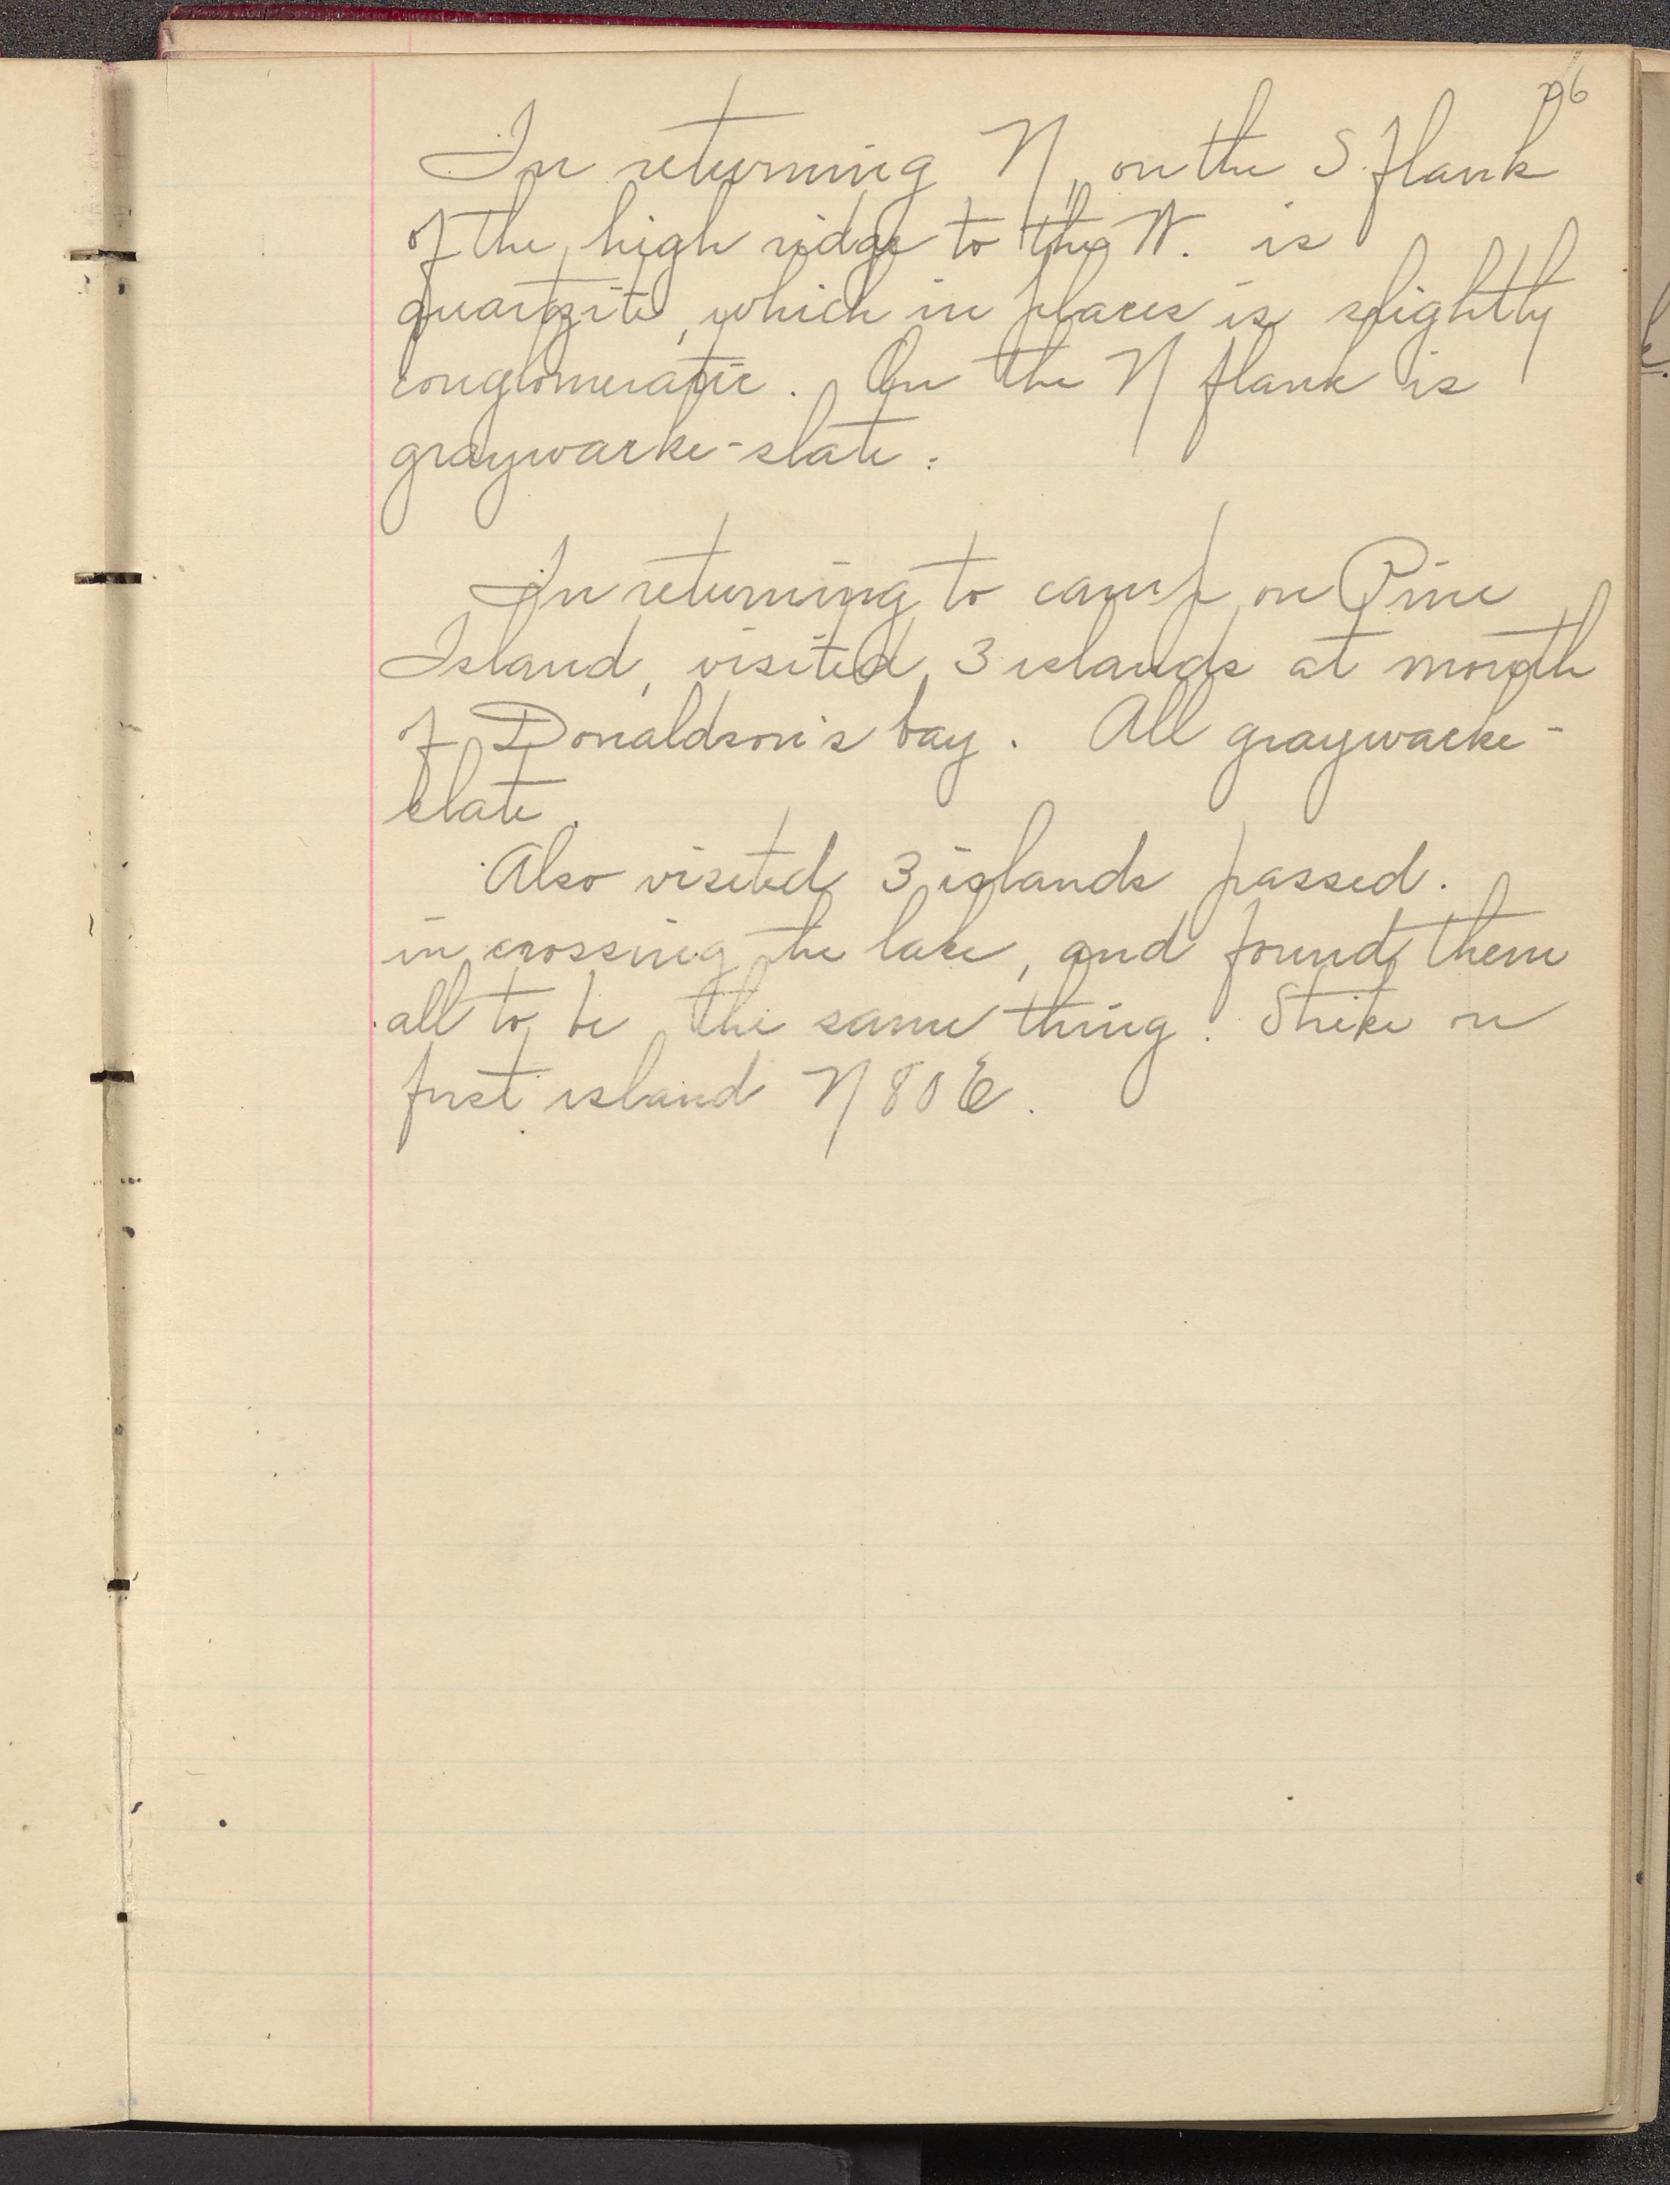 96
In returning N, on the S. flank
of the high ridge to the W. is
quartzite, which in places is slightly
conglomeratic. On the N flank is
graywacke-slate.
In returning to camp on Pine
Island, visited 3 islands at mouth
of Donaldson's bay. All graywacke-
slate.
Also visited 3 islands passed.
in crossing the lake, and found them
all to be the same thing. Strike on
first island N 80 E.